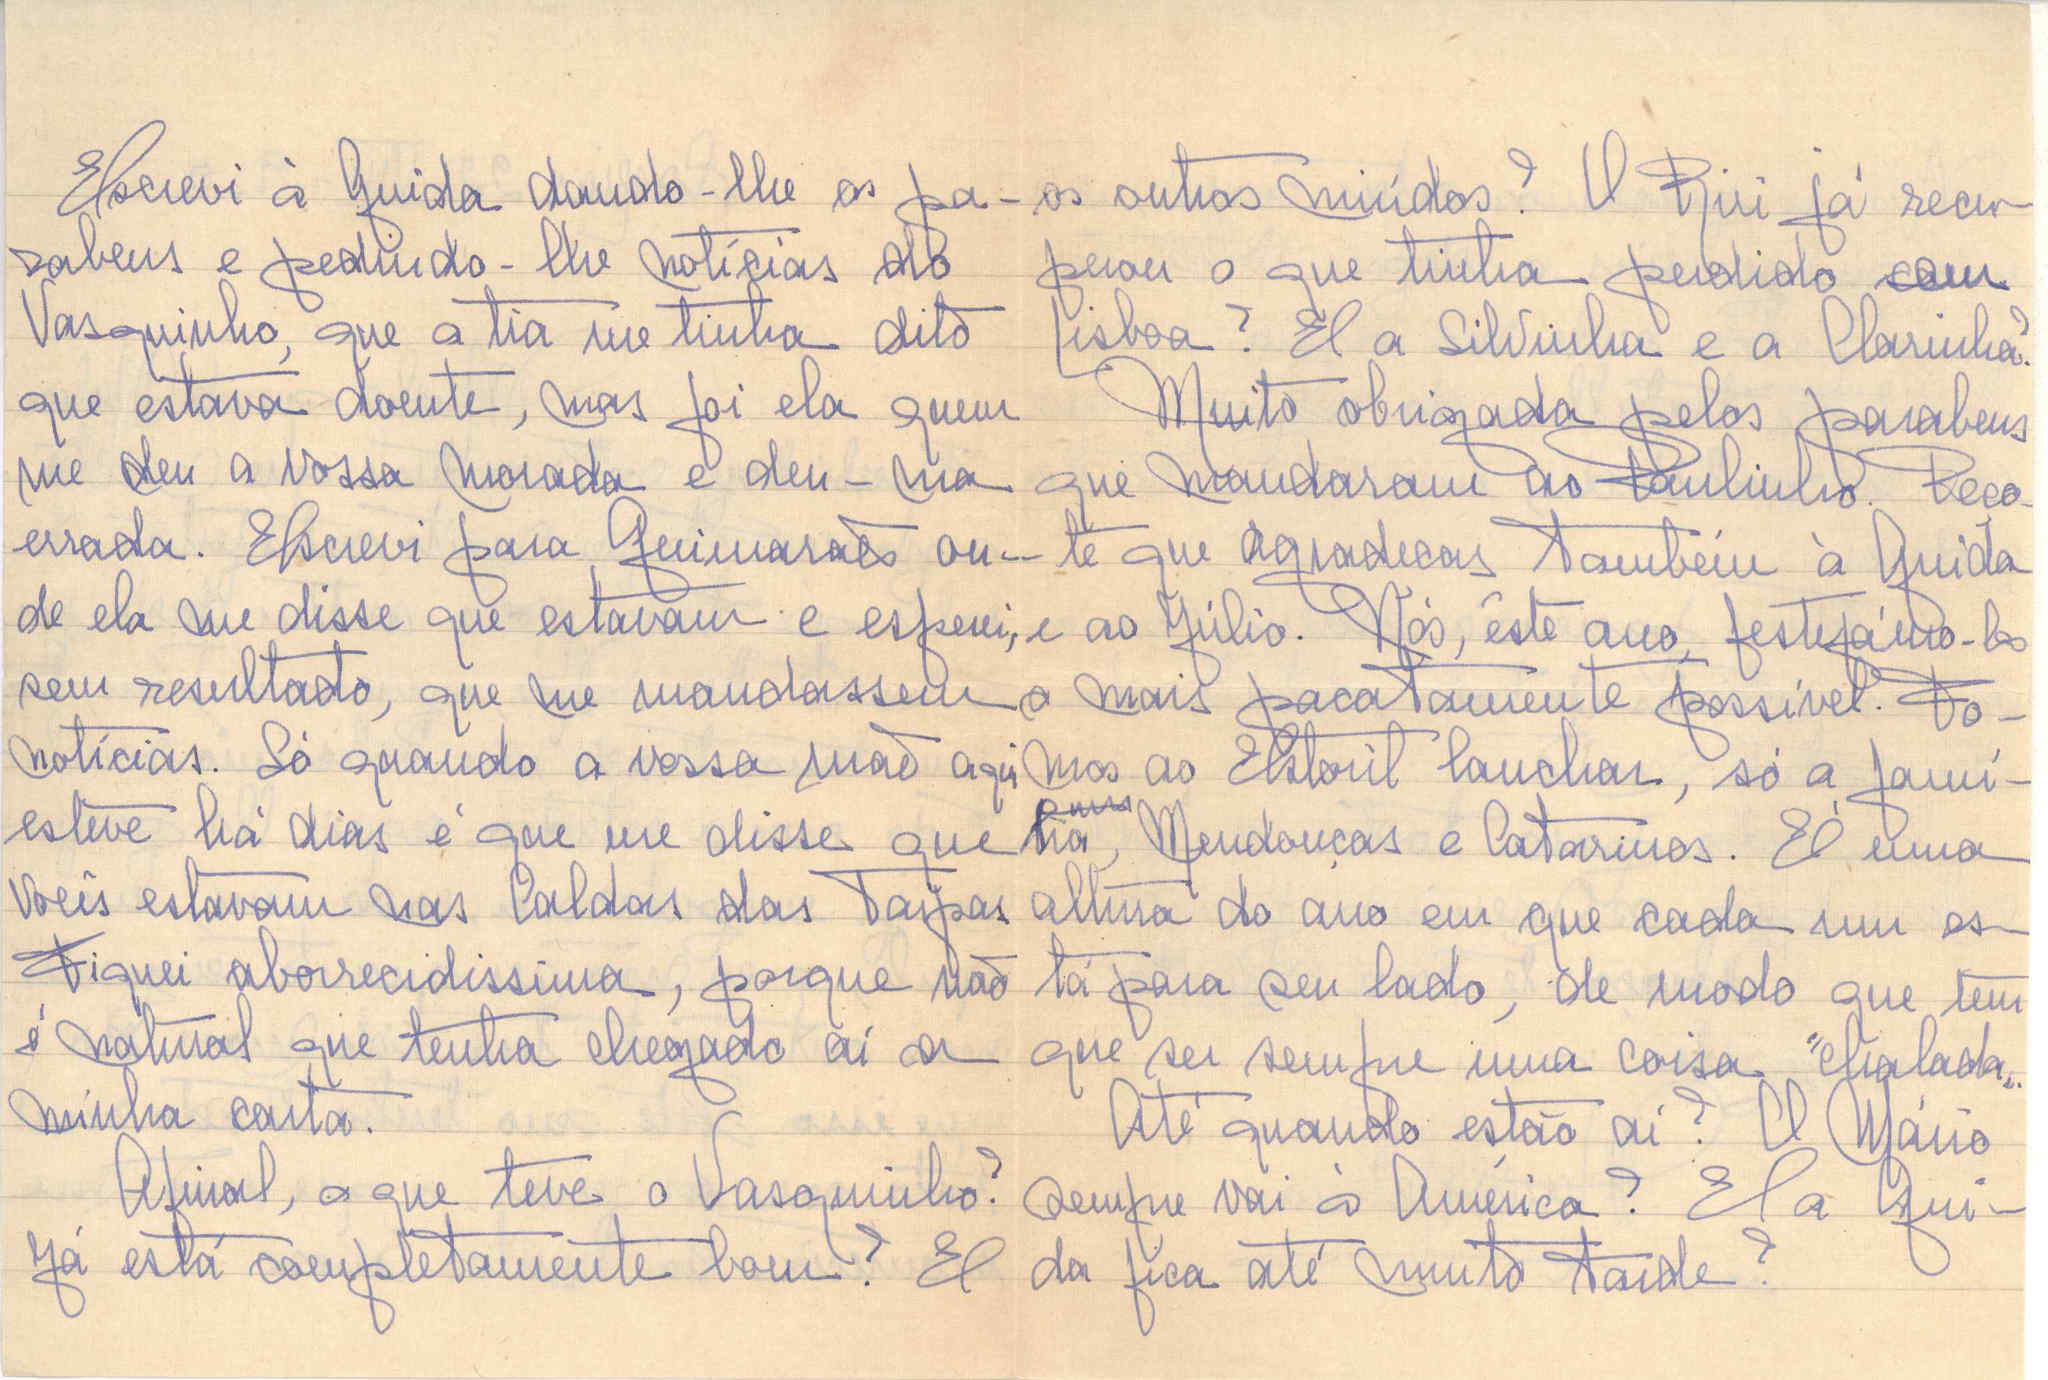 Escrevi à Guida dando-lhe os pa-
rabens e pedindo-lhe notícias do
Vasquinho, que a tia me tinha dito
que estava doente, mas foi ela quem
me deu a vossa morada e deu-ma
errada. Escrevi para Guimarães on-
de ela me disse que estavam e esperei,
sem resultado, que me mandassem
notícias. Só quando a vossa mãe aqui
esteve há dias é que me disse que
vocês estavam nas Caldas das Taipas
Fiquei aborrecidissima, porque não
é natural que tenha chegado aí a
minha carta.
Afinal, o que teve o Vasquinho?
Já está completamente bom? E
os outros miúdos? O Rui já recu-
perou o que tinha perdido em
Lisboa? E a Silvinha e a Clarinha?
Muito obrigada pelos parabens
que mandaram ao Paulinho. Peço-
te que agradeças também à Guida
e ao Júlio. Nós, êste ano, festejámo-lo
o mais pacatamente possível. Fo-
mos ao Estoril lanchar, só a famí-
lia, Mendonças e Catarinos. É uma
altura do ano em que cada um es-
tá para seu lado, de modo que tem
que ser sempre uma coisa "chalada".
Até quando estão aí? O Mário
sempre vai à América? E a Gui-
da fica até muito tarde?